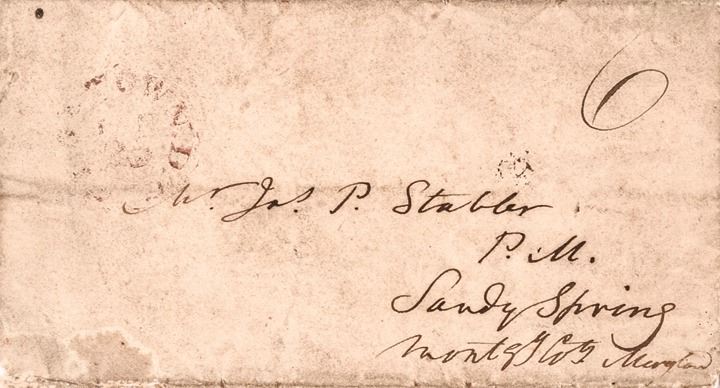 6
TOWN D
Mr. Jas. P. Stabler
P. M.
Sandy Spring
Montgy Coty Maryland